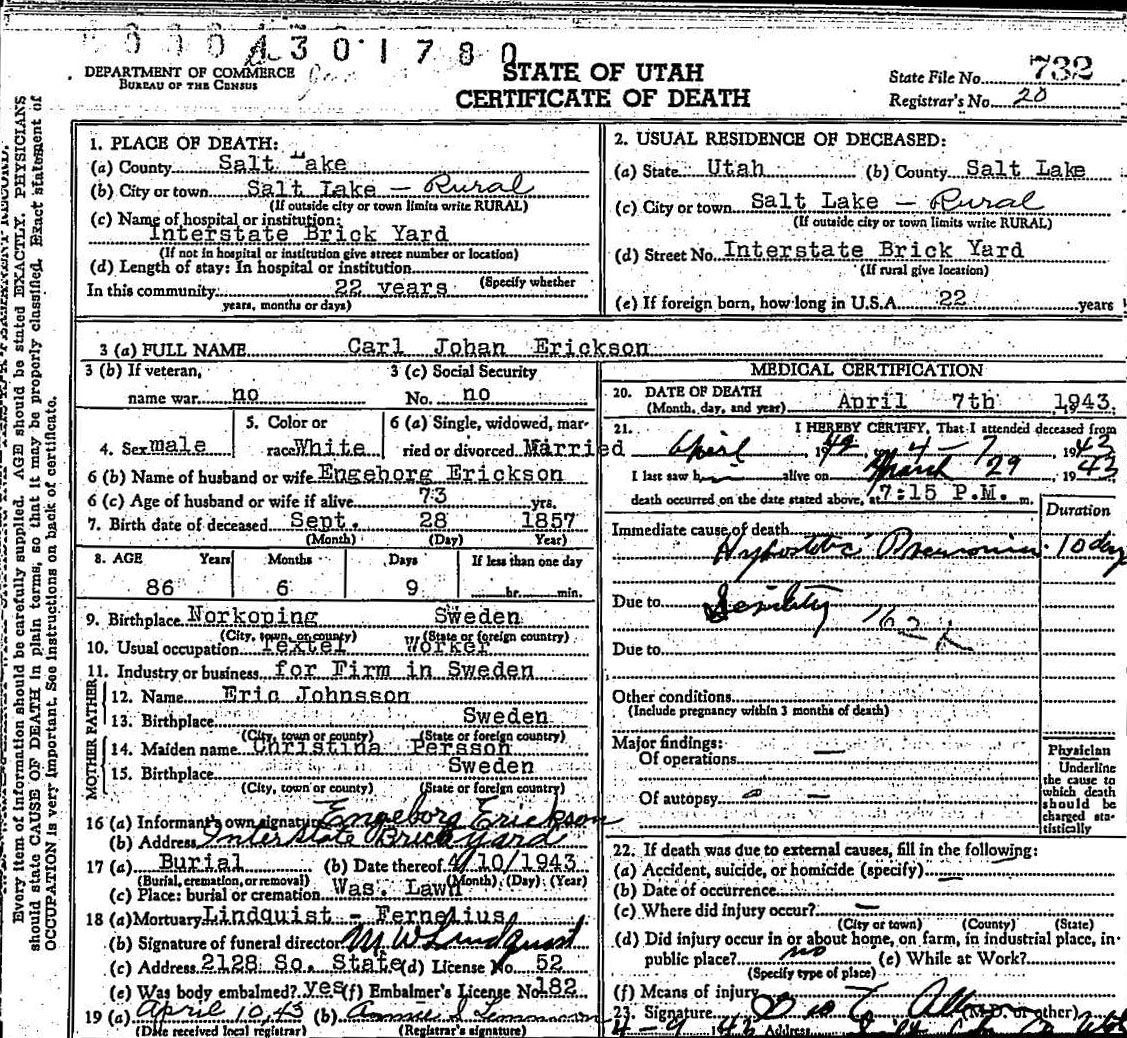 0004301780
DEPARTMENT OF COMMERCE
BUREAU OF THE CENSUS
STATE OF UTAH
CERTIFICATE OF DEATH
State File No. 732
Registrar's No. 20
Every item of information should be carefully supplied. AGE should be stated EXACTLY. PHYSICIANS
should state CAUSE OF DEATH in plain terms, so that it may be properly classified. Exact statement of
OCCUPATION is very important. See instructions on back of certificate.
1. PLACE OF DEATH:
(a) County Salt Lake
(b) City or town Salt Lake — Rural
(If outside city or town limits write RURAL)
(c) Name of hospital or institution:
Interstate Brick Yard
(If not in hospital or institution give street number or location)
(d) Length of stay: In hospital or institution
(Specify whether
In this community 22 years
years, months or days)
2. USUAL RESIDENCE OF DECEASED:
(a) State Utah (b) County Salt Lake
(c) City or town Salt Lake — Rural
(If outside city or town limits write RURAL)
(d) Street No. Interstate Brick Yard
(If rural give location)
(e) If foreign born, how long in U.S.A. 22 years
3 (a) FULL NAME Carl Johan Erickson
3 (b) If veteran, 3 (c) Social Security
name war no No. no
4. Sex male 5. Color or race White 6 (a) Single, widowed, married or divorced Married
6 (b) Name of husband or wife Engeborg Erickson
6 (c) Age of husband or wife if alive 73 yrs.
7. Birth date of deceased Sept. 28 1857
(Month) (Day) Year)
8. AGE Years Months Days If less than one day
86 6 9 hr. min.
9. Birthplace Norkoping Sweden
(City, town, or county) (State or foreign country)
10. Usual occupation Textel Worker
11. Industry or business for Firm in Sweden
FATHER
12. Name Eric Johnsson
13. Birthplace Sweden
(City, town or county) (State or foreign country)
MOTHER
14. Maiden name Christina Persson
15. Birthplace Sweden
(City, town or county) (State or foreign country)
16 (a) Informant's own signature Engeborg Erickson
(b) Address Interstate Brickyard
17 (a) Burial (b) Date thereof 4/10/1943
(Burial, cremation, or removal) (Month) (Day) (Year)
(c) Place: burial or cremation Was. Lawn
18 (a) Mortuary Lindquist - Fernelius
(b) Signature of funeral director M W Lindquist
(c) Address 2128 So. State (d) License No. 52
(e) Was body embalmed? yes (f) Embalmer's License No. 182
19 (a) April 10, 43 (b)
(Date received local registrar) (Registrar's signature)
MEDICAL CERTIFICATION
20. DATE OF DEATH
(Month, day, and year) April 7th 1943
21. I HEREBY CERTIFY, That I attended deceased from
April 1942 4-7 1943
I last saw h alive on March 29 1943
death occurred on the date stated above, at 7:15 P.M. m.
Duration
Immediate cause of death
Hypostatic Pneumonia 10 day
Due to Senility
162
Due to
Other conditions
(Include pregnancy within 3 months of death)
Major findings:
Of operations —
Of autopsy —
Physician
Underline
the cause to
which death
should be
charged statistically
22. If death was due to external causes, fill in the following:
(a) Accident, suicide, or homicide (specify) —
(b) Date of occurrence
(c) Where did injury occur? —
(City or town) (County) (State)
(d) Did injury occur in or about home, on farm, in industrial place, in
public place? no (e) While at Work?
(Specify type of place)
(f) Means of injury
23. Signature (M.D. or other)
4-9 1943 Address